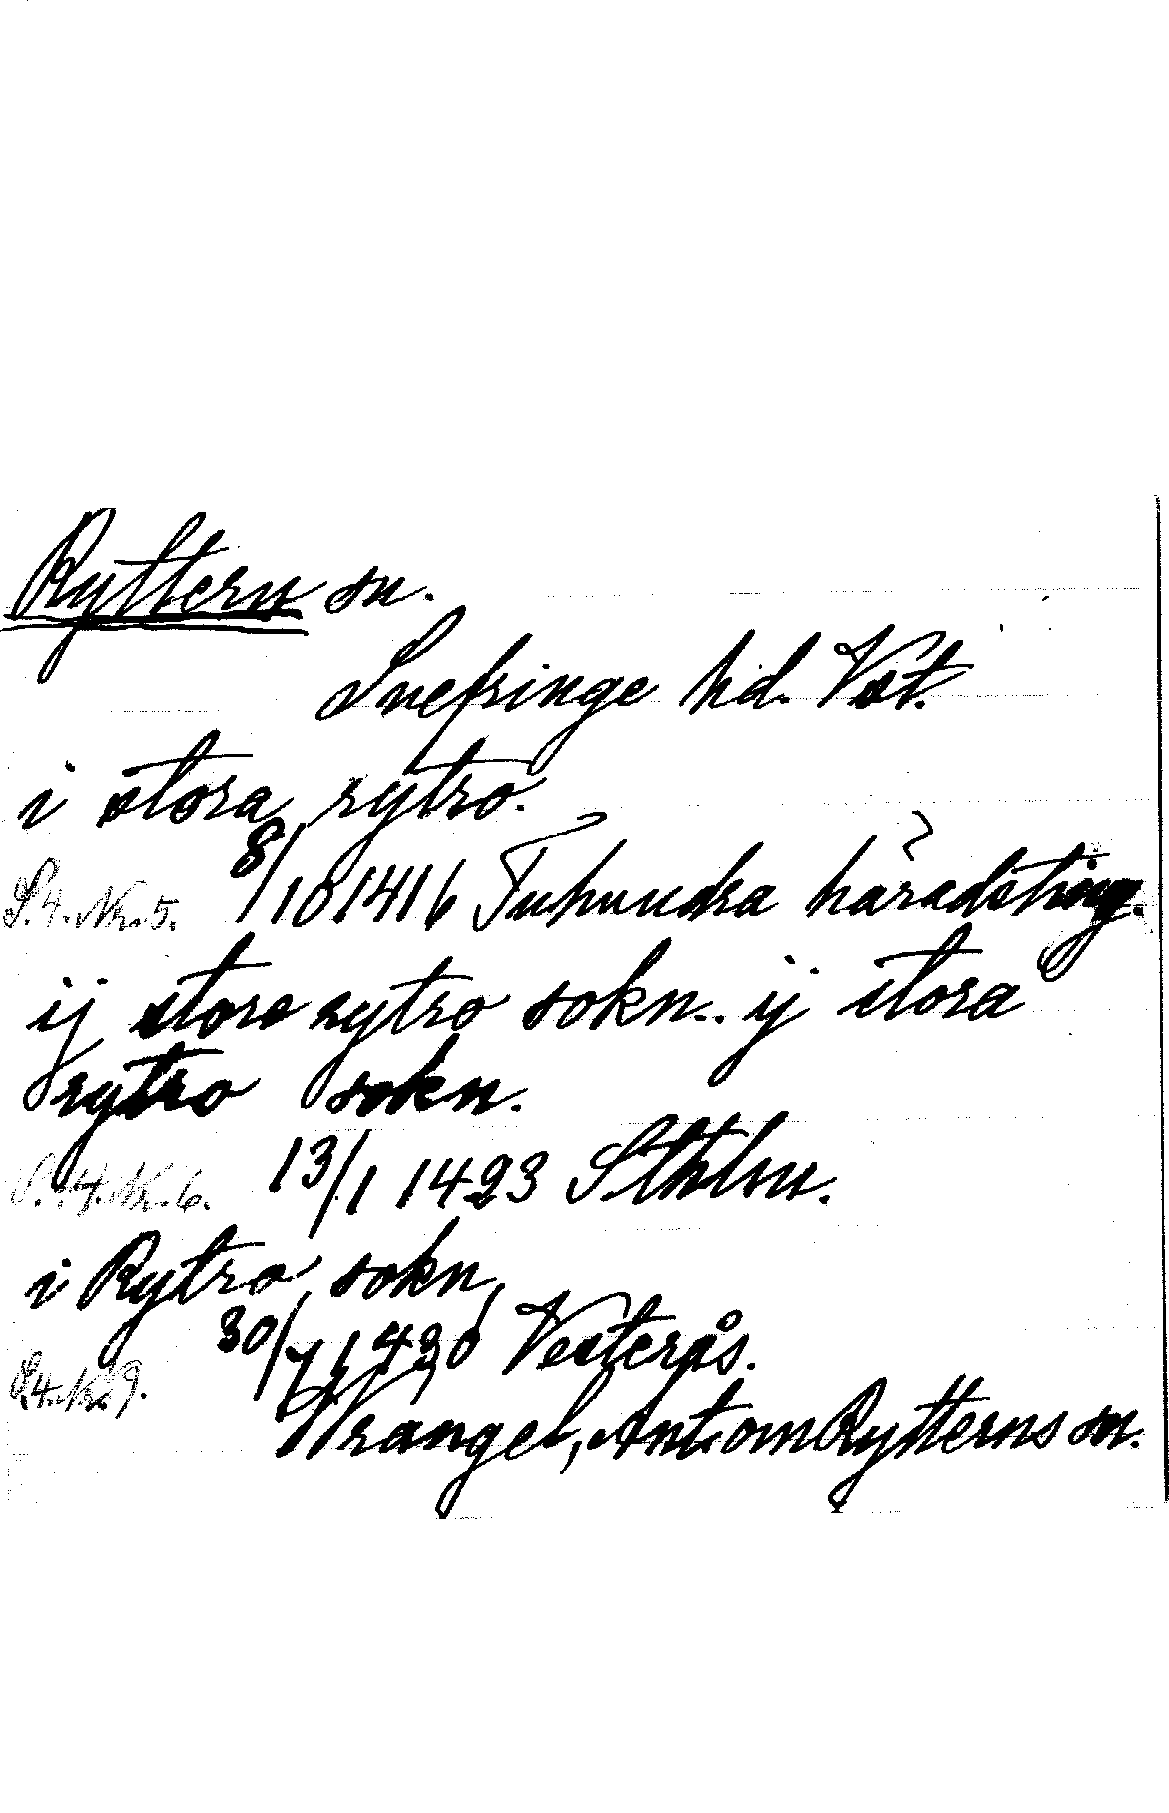 Ryttern sn.
Snefringe hd. Vst.
i stora rytro.
S.4. Nr. 5. 8/10 1416 Tuhundra häradsting.
ij store rytro sokn.. ij stora
rytro sokn.
S. 4. Nr. 6. 13/1 1423 Sthlm.
i Rytro sokn,
S.4. Nr. 9. 30/7 1430 Vesterås.
Wrangel, Ant. om Rytterns sn.